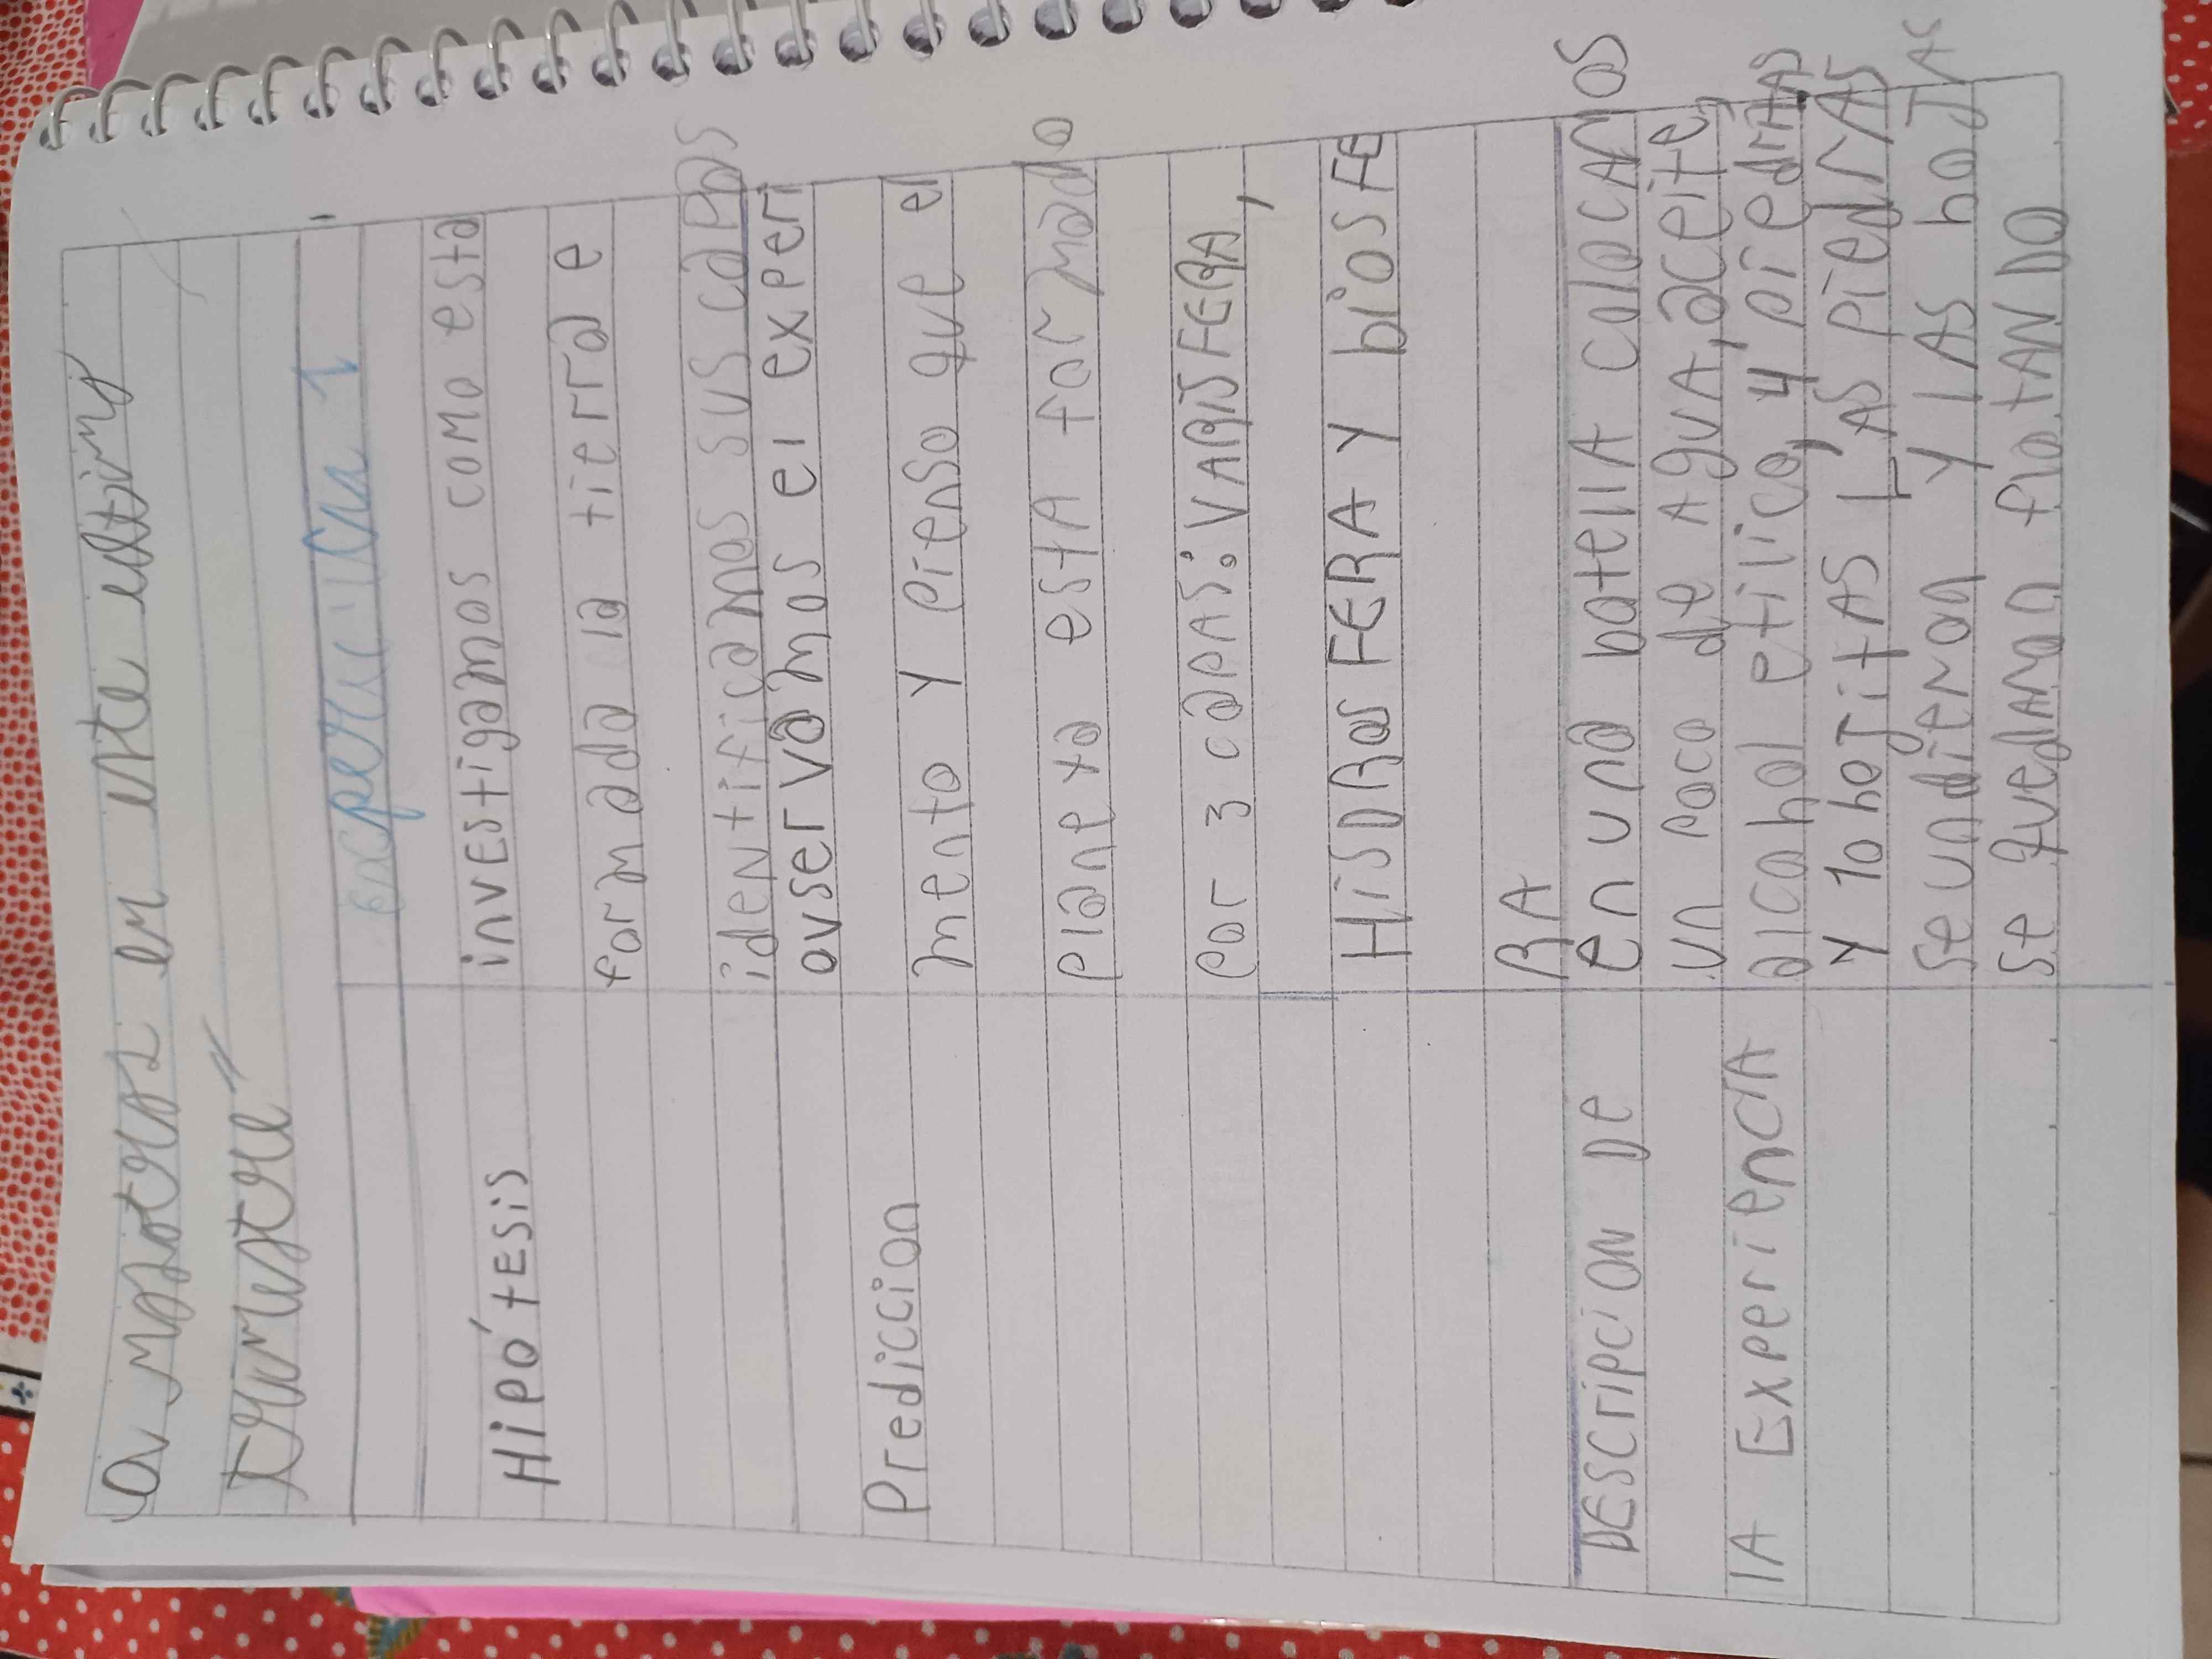 a nosotros en este ultimo
trimestre"
experiencia 1
Hipótesis
investigamos como esta
formada la tierra e
identificamos sus capas
Prediccion
ovservamos el experi
mento y pienso que el
planeta esta formado
por 3 capas: VARISFERA,
HISDROSFERA Y biosFE
RA
DEscripcion DE
lA ExperienciA
en una botella colocAmos
un poco de AguA, aceite,
alcohol etilico, y piedritAs
y 10 hojitAs LAs piedrAs
se undieron y lAs hojAs
se quedAron flotANDO